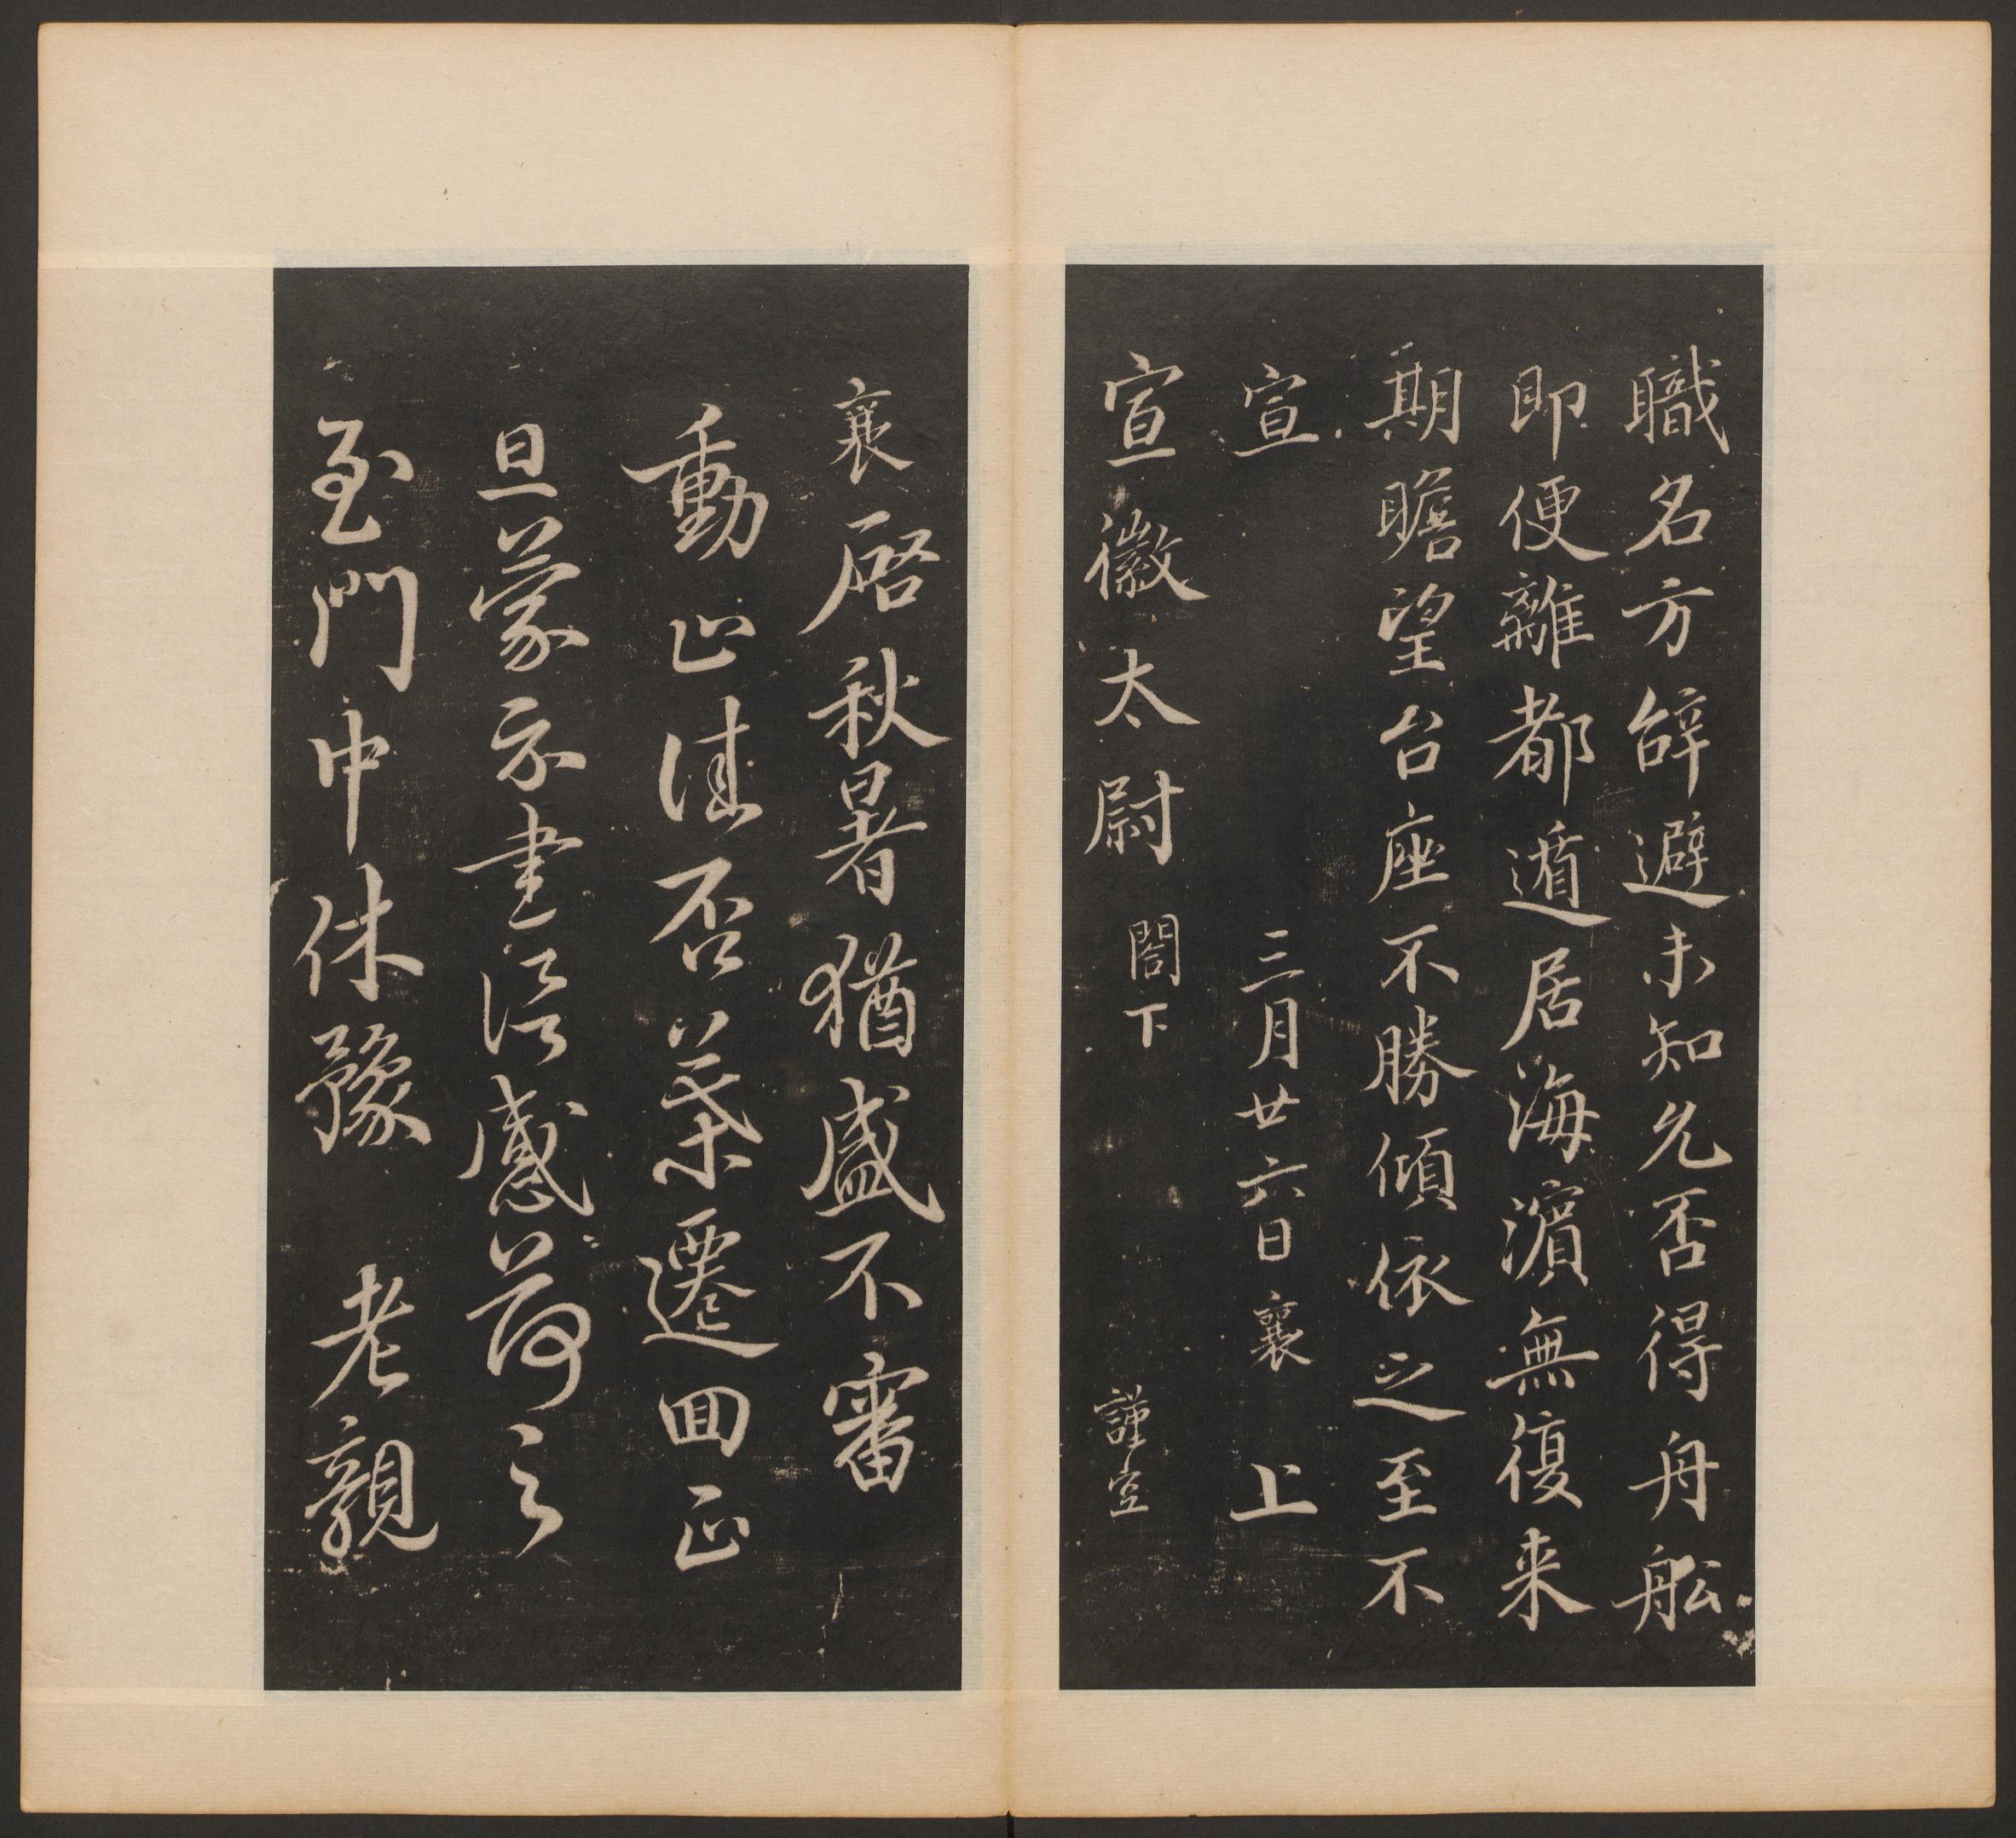 職名方辝避未知允否得舟舩
即便離都遁居海濵無復来
期瞻望台座不勝傾依之至不
宣 三月廿六日襄 上
宣徽太尉 閤下 謹空
襄啓秋暑猶盛不審
動止佳否葉遷囬正
旦蒙示書誨感荷之
至門中休豫 老親